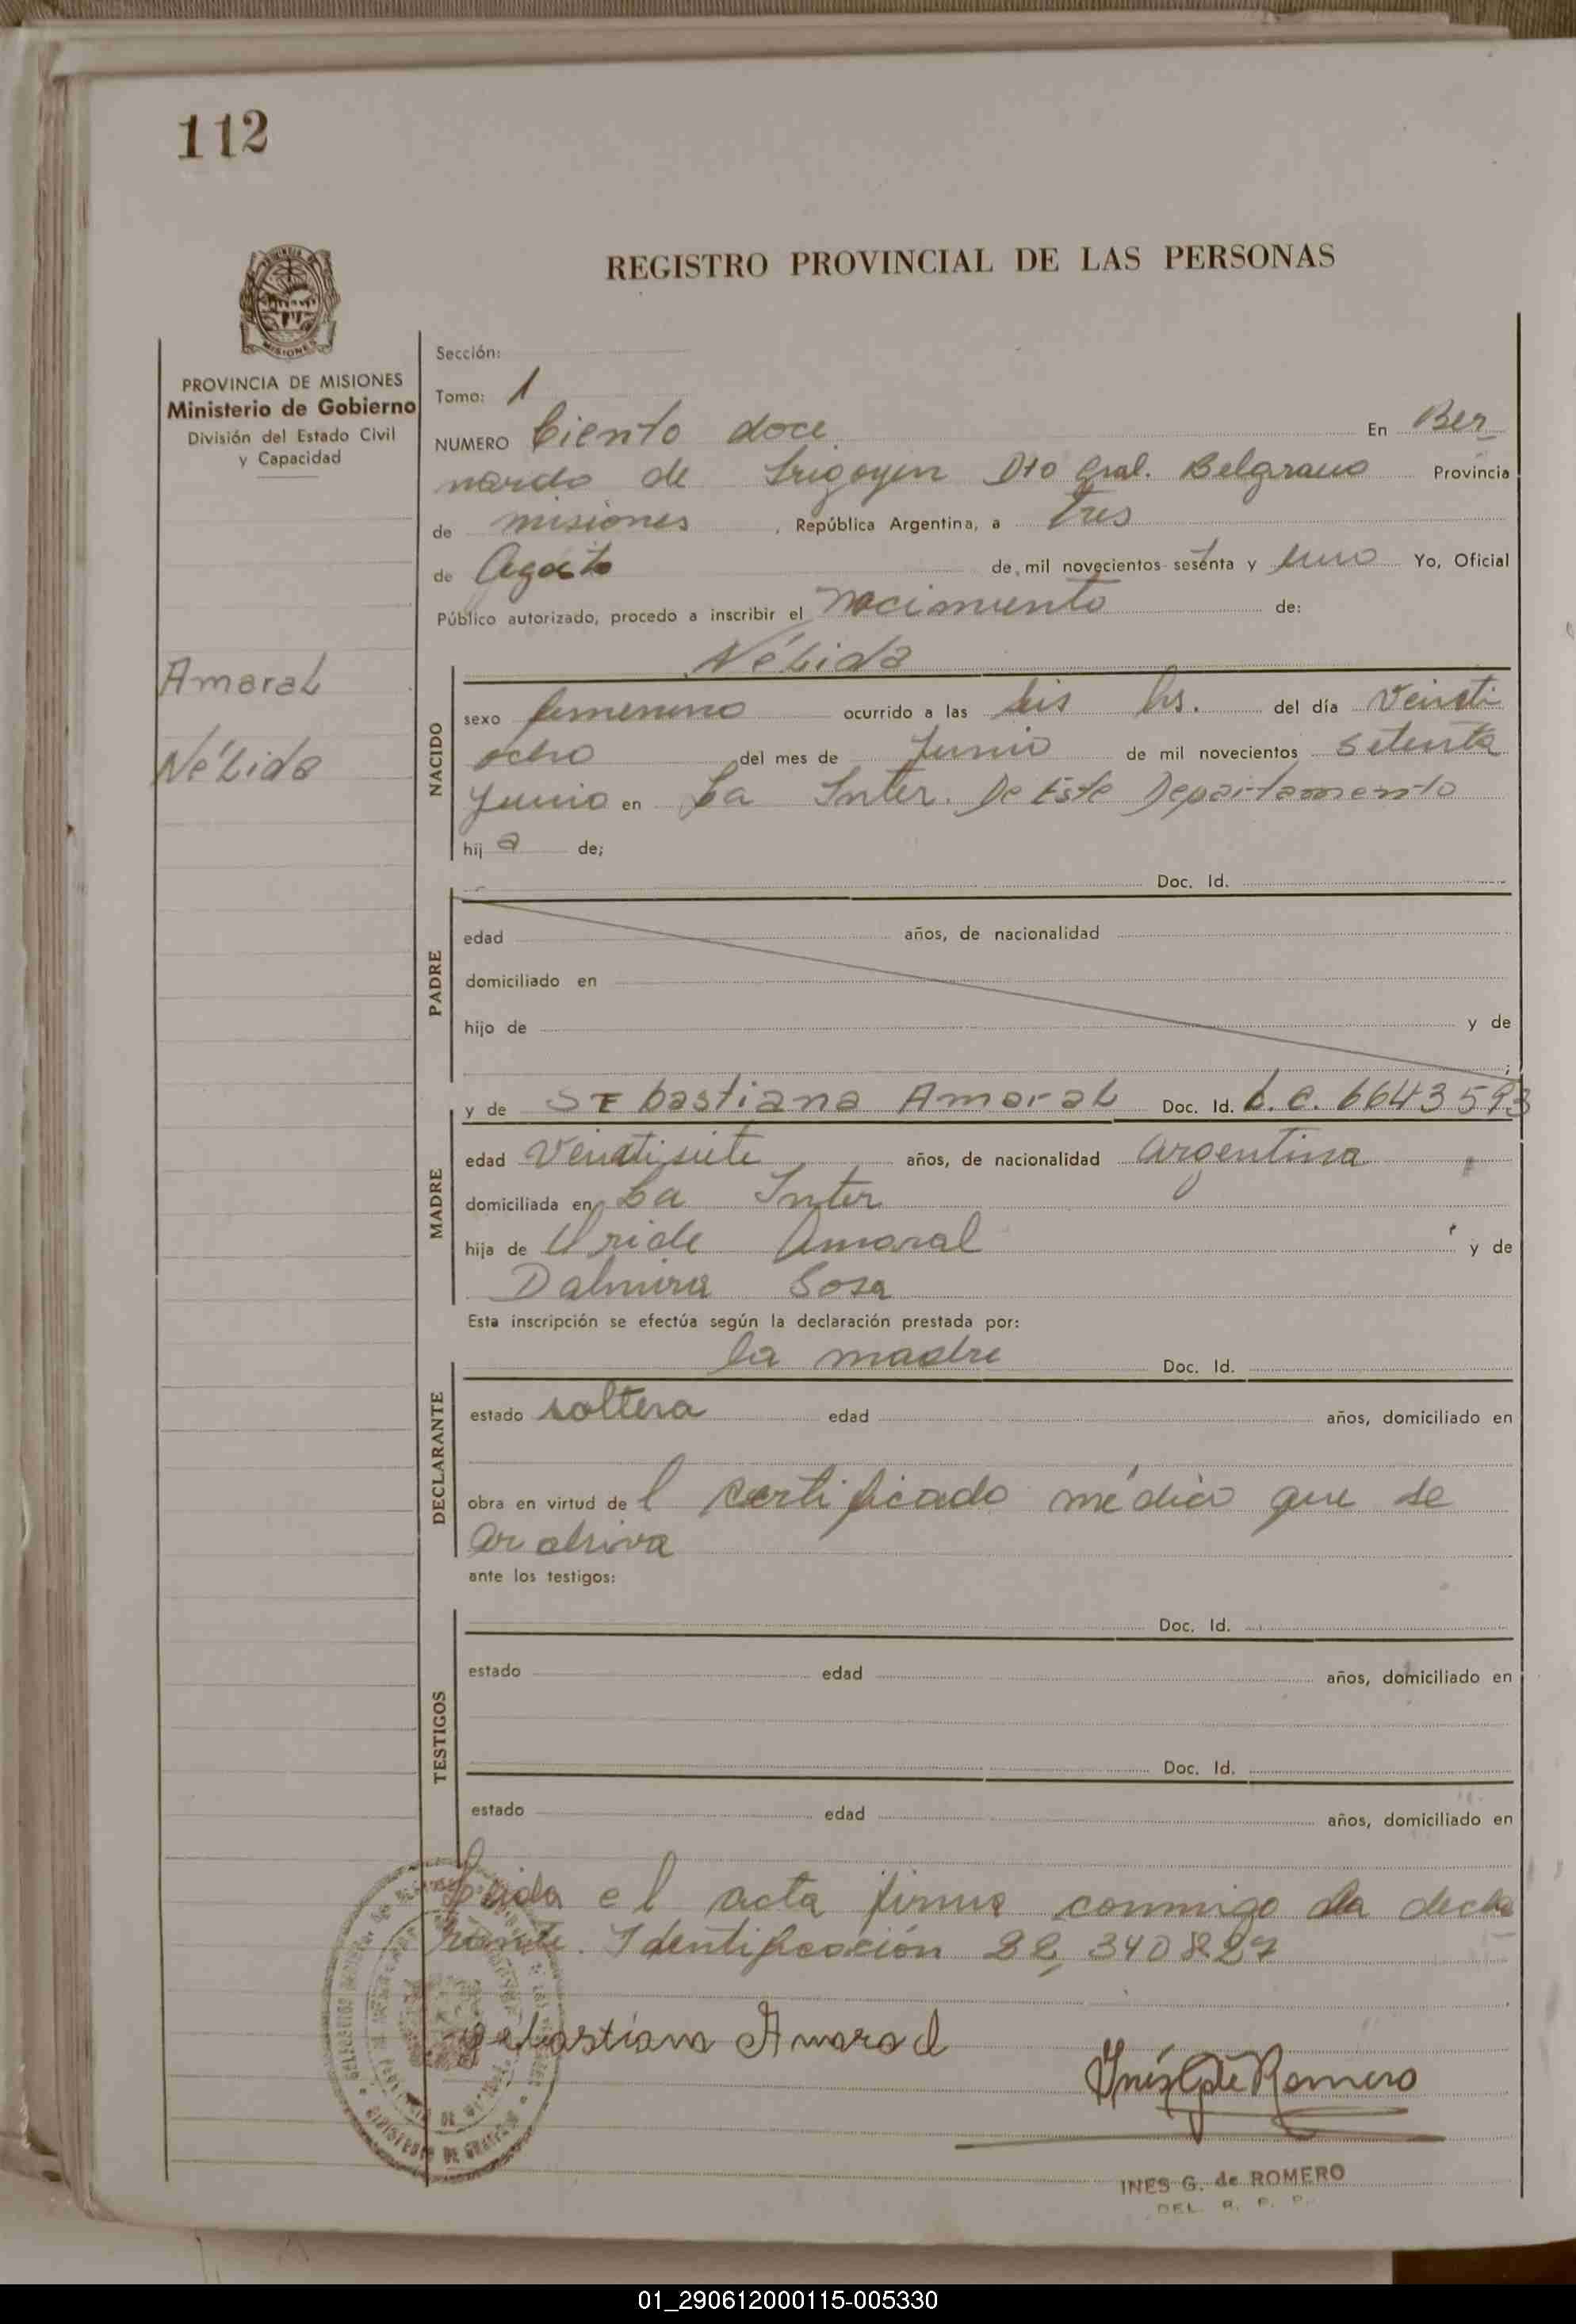 112
REGISTRO PROVINCIAL DE LAS PERSONAS
MISIONES
PROVINCIA DE MISIONES
Ministerio de Gobierno
División del Estado Civil
y Capacidad
Sección:
Tomo: 1
NUMERO Ciento doce En Ber
nardo de Irigoyen Dto Gral. Belgrano Provincia
de misiones, República Argentina, a Tres
de Agosto de mil novecientos sesenta y uno Yo, Oficial
Público autorizado, procedo a inscribir el nacimiento de:
Nélida
Amaral
Nélida
NACIDO
sexo femenino ocurrido a las seis hs. del día veinti
ocho del mes de Junio de mil novecientos setenta
y uno en La Inter. De Este Departamento
hij a de;
PADRE
Doc. Id.
edad años, de nacionalidad
domiciliado en
hijo de y de
;
MADRE
y de SEbastiana Amaral Doc. Id. L.C. 6643593
edad Veintisiete años, de nacionalidad argentina
domiciliada en La Inter
hija de Amaral y de
Dalmira Sosa
Esta inscripción se efectúa según la declaración prestada por:
DECLARANTE
la madre Doc. Id.
estado soltera edad años, domiciliado en
obra en virtud de l certificado médico que se
archiva
ante los testigos:
TESTIGOS
Doc. Id.
estado edad años, domiciliado en
Doc. Id.
estado edad años, domiciliado en
Leida el acta firma conmigo la decla
rante. Identificación 22.340827
Sebastiana Amaral
Inés G de Romero
INES G. de ROMERO
DEL. R. P. P.
01_290612000115-005330